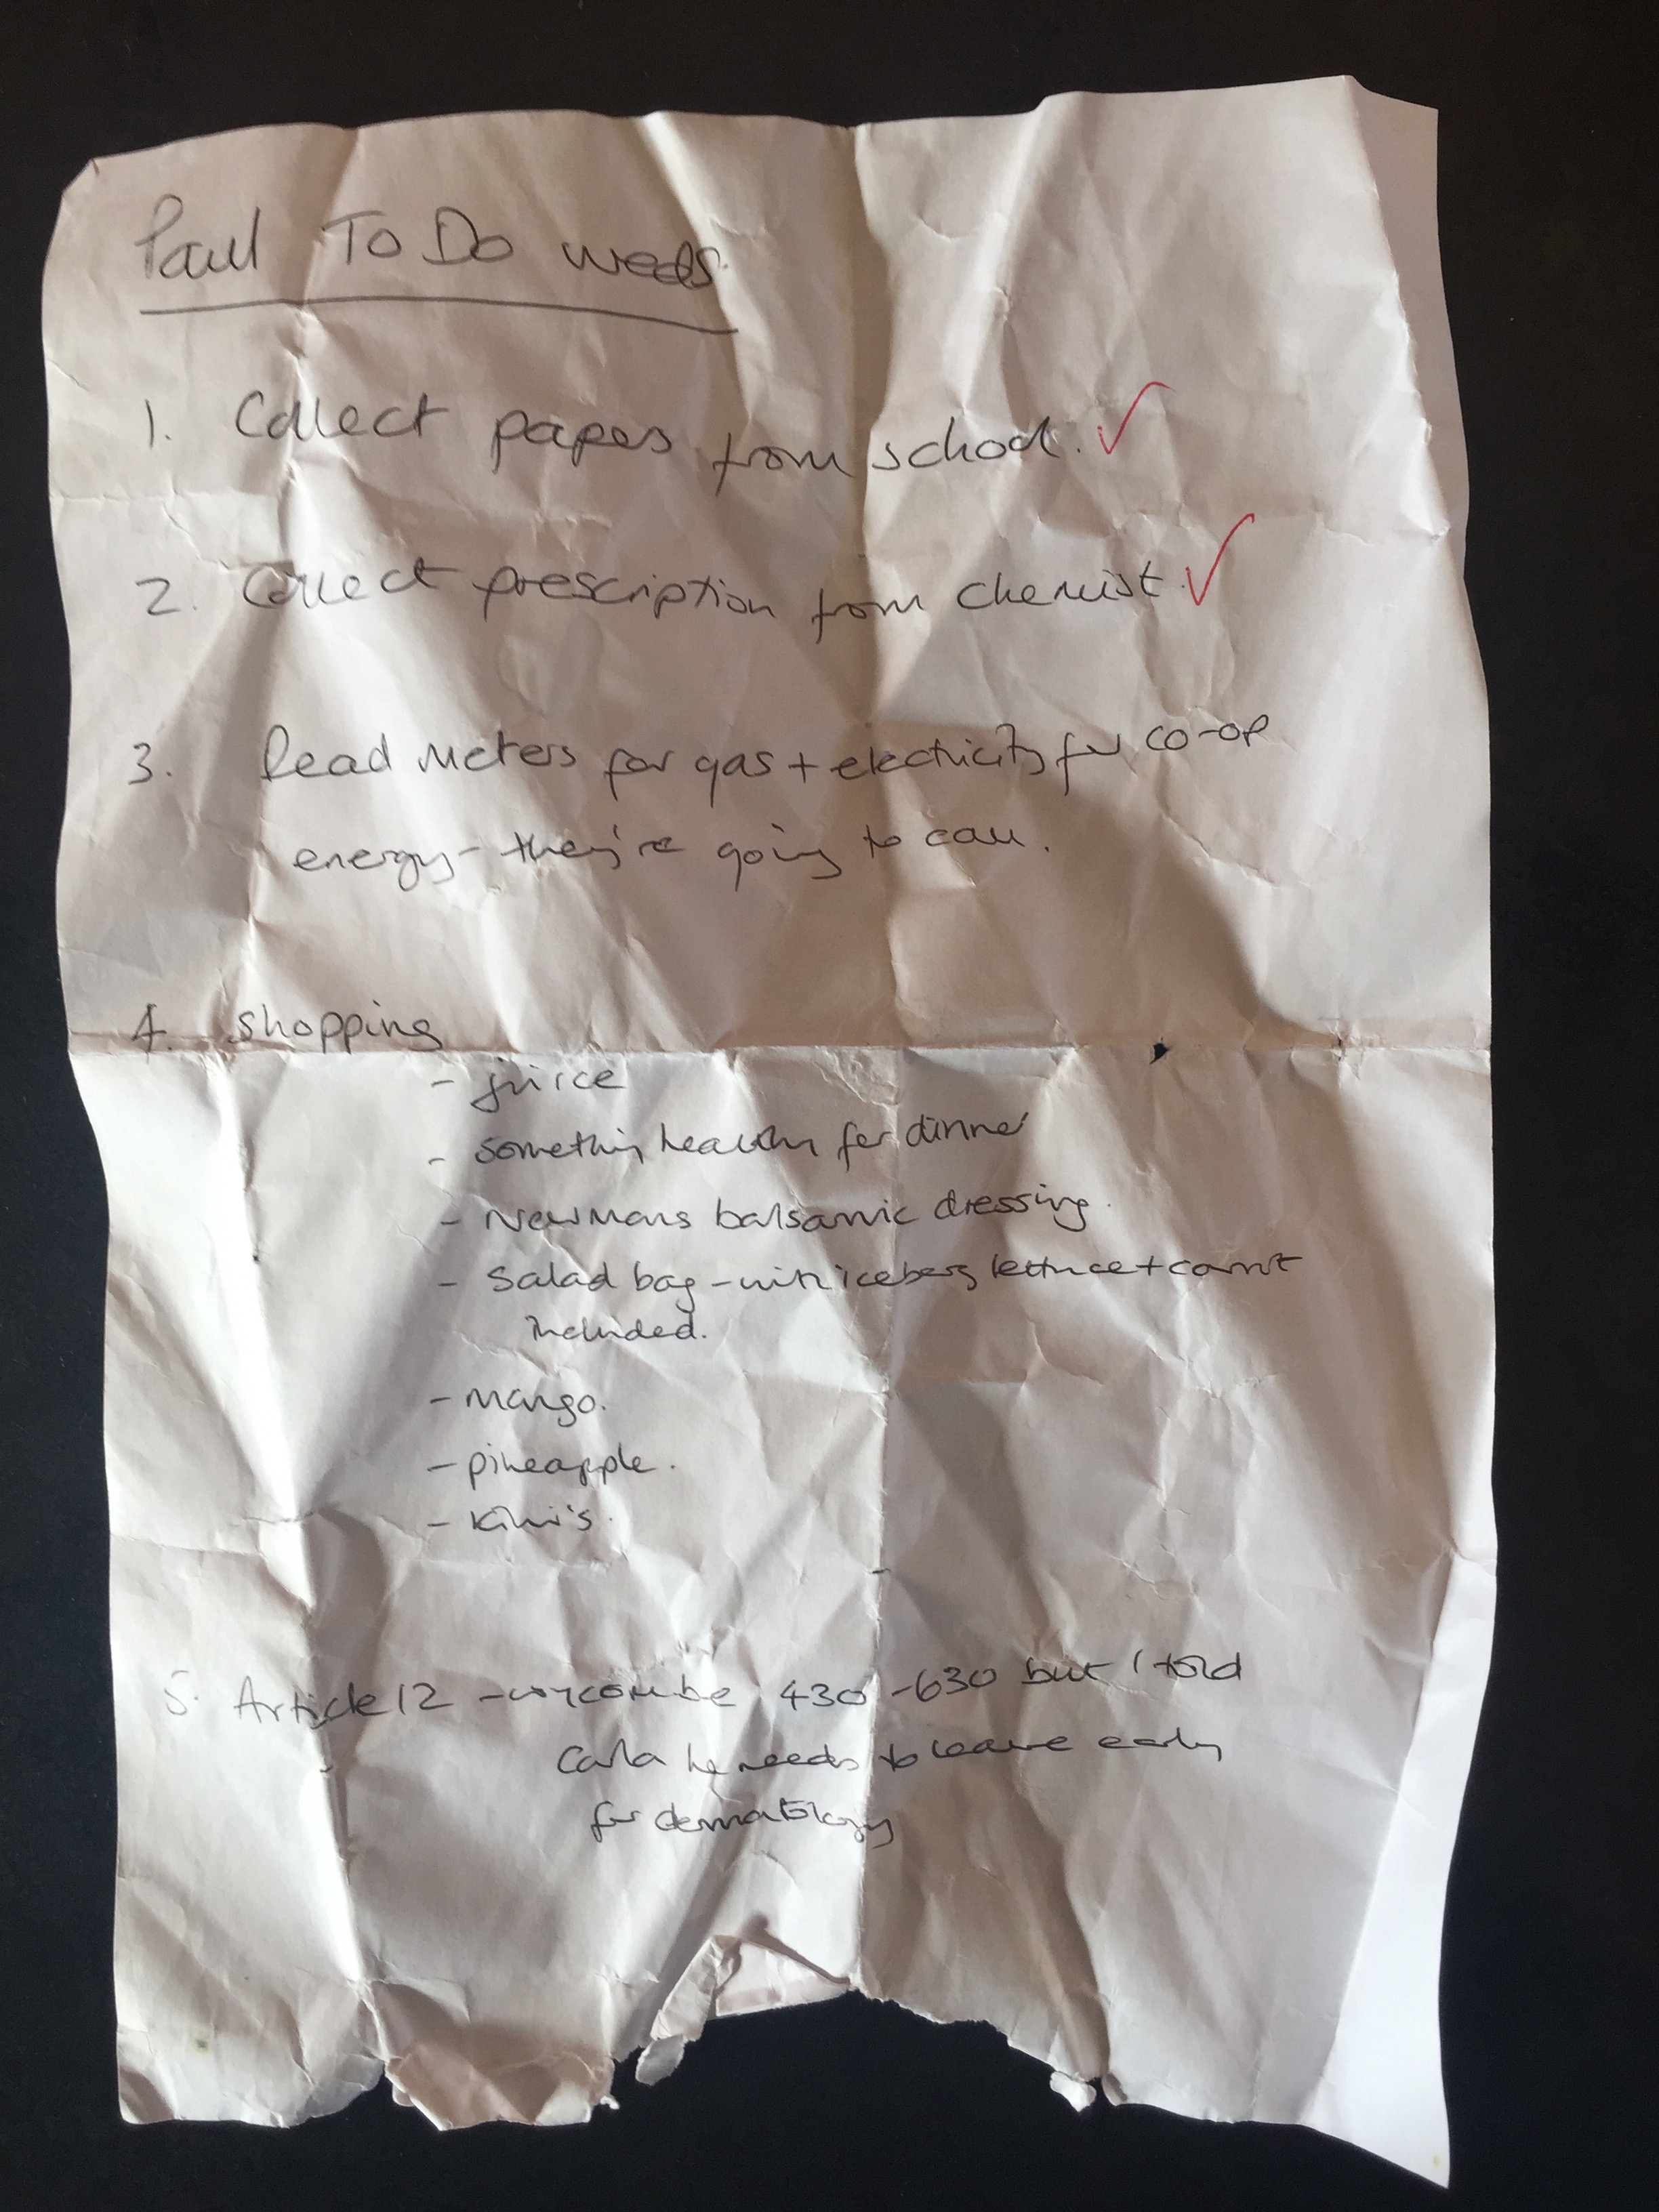 Paul To Do weds.
1. Collect papers from school. ✓
2. Collect prescription from chemist. ✓
3. Read meters for gas + electricity for co-op
energy - they're going to call.
4. shopping
- juice
- something healthy for dinner
- Newmans balsamic dressing.
- Salad bag - with iceberg lettuce + carrot
included.
- mango.
- pineapple.
- Kiwi's.
5. Article 12 - wycombe 430 - 630 but I told
Carla he needs to leave early
for dermatology